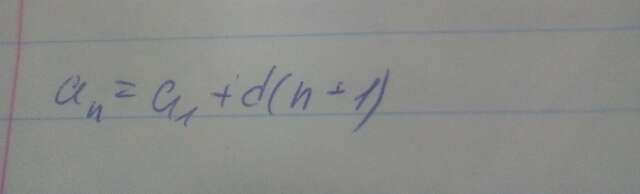 aₙ = a₁ + d(n - 1)